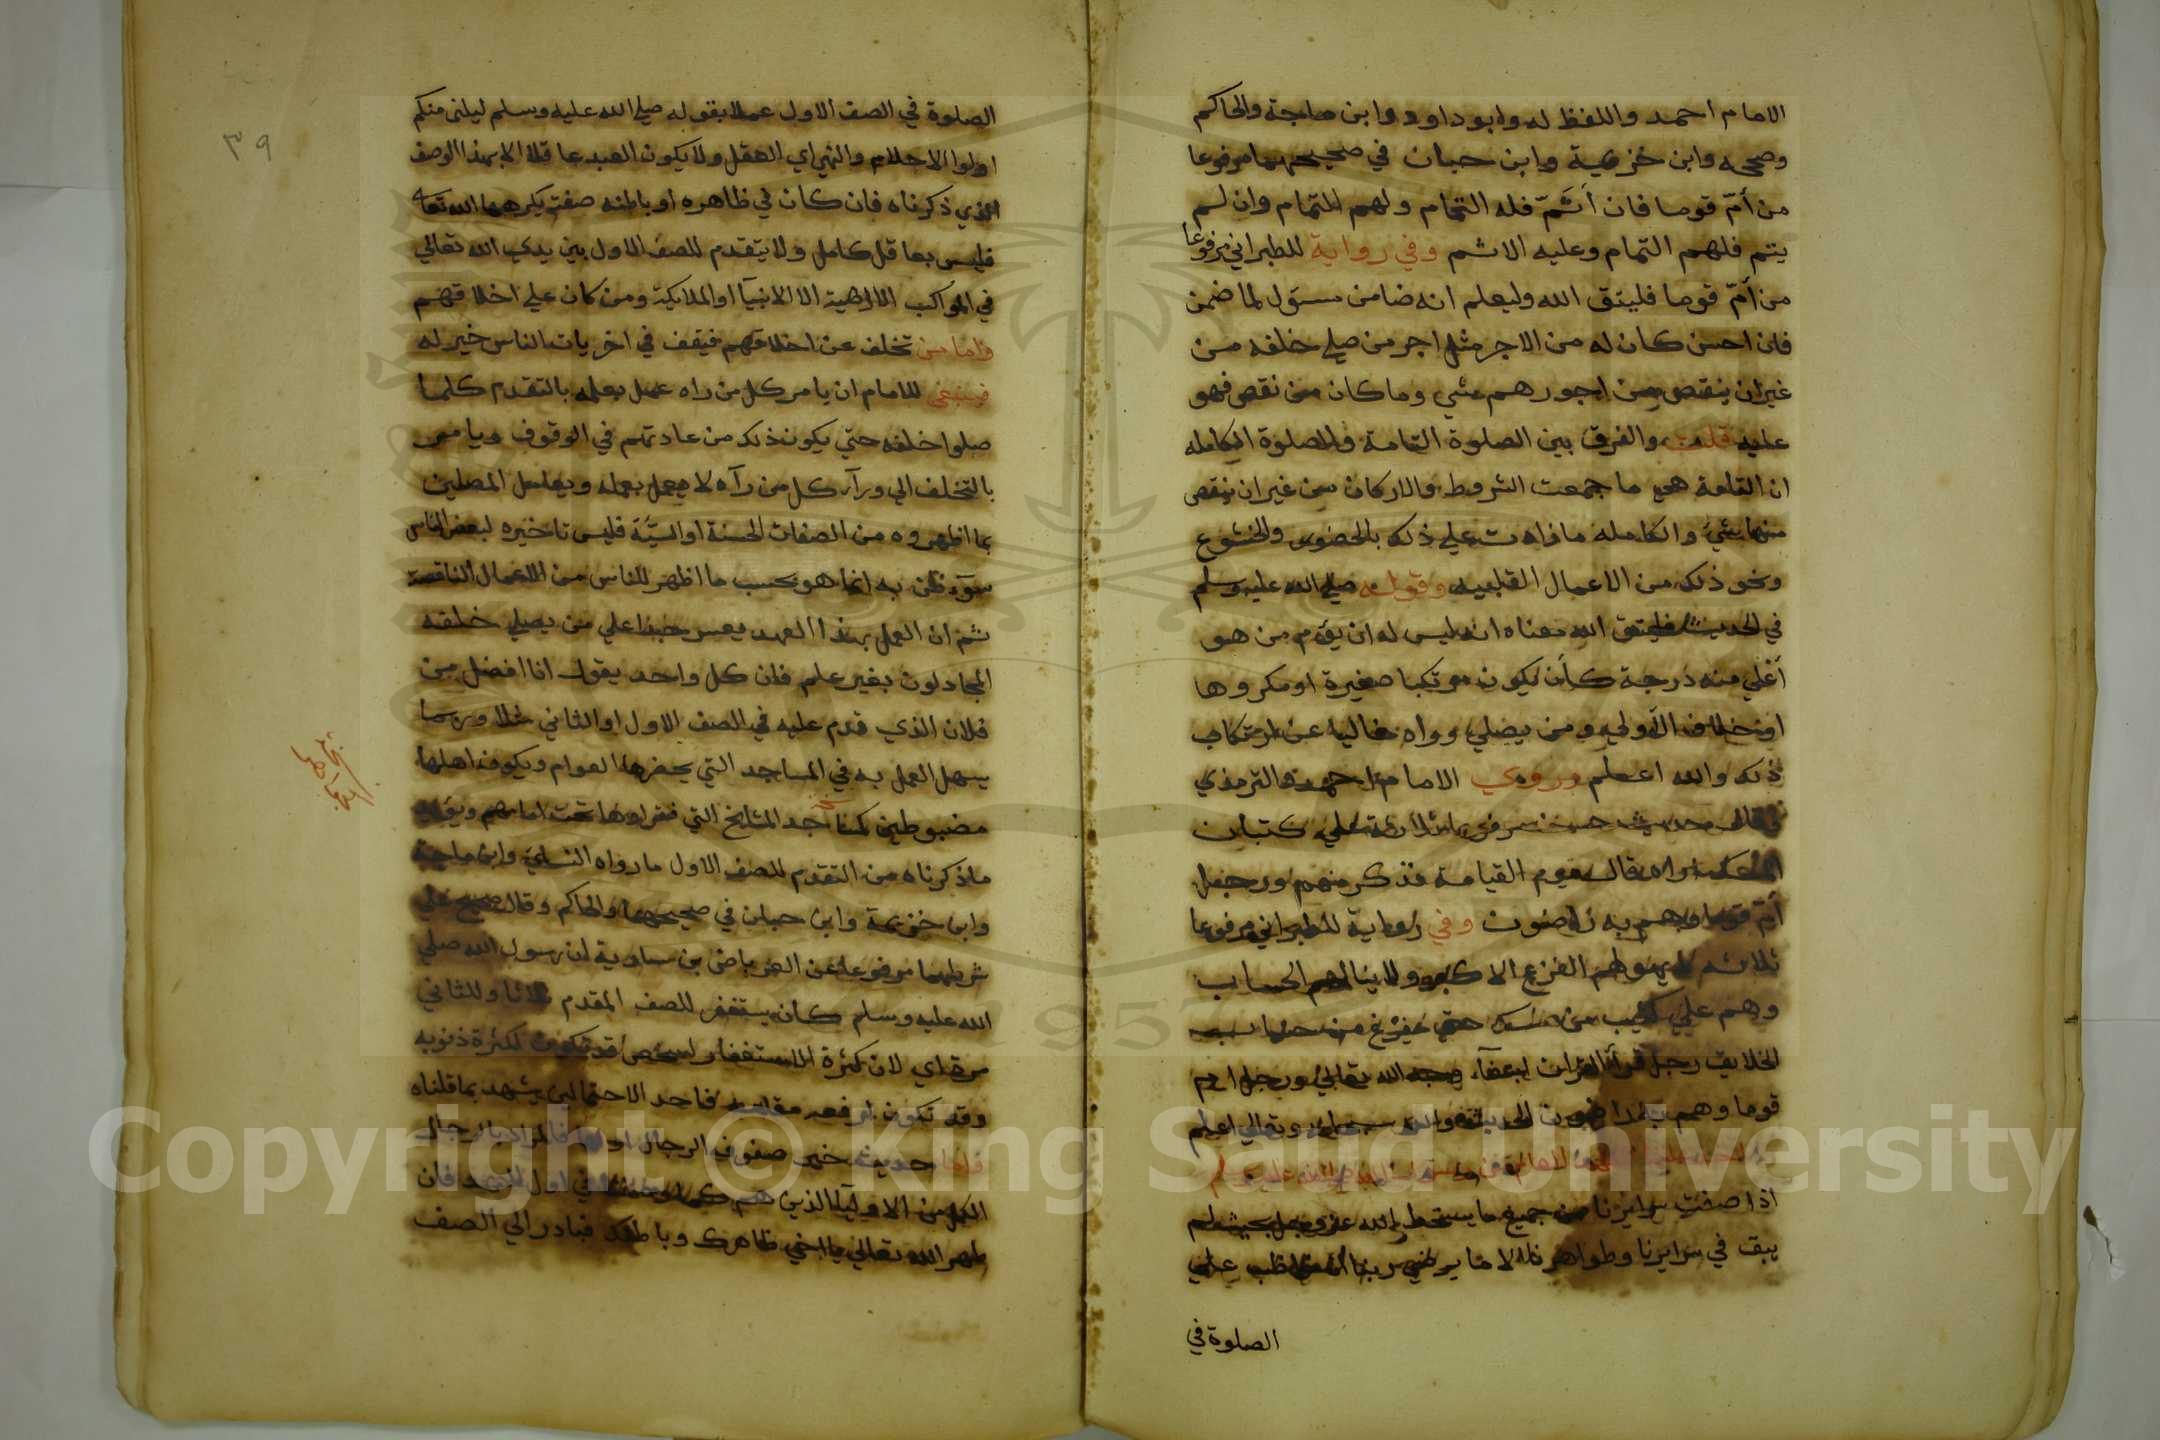 الامام احمد واللفظ له وابو داود وابن ماجة والحاكم
وصححه وابن خزيمة وابن حبان في صحيحهما مرفوعا
من أمّ قوما فان أتمّ فله التمام ولهم التمام وان لم
يتم فلهم التمام وعليه الاثم وفي رواية للطبراني مرفوعا
من أمّ قوما فليتق الله وليعلم انه ضامن مسؤل لما ضمن
فان احسن كان له من الاجر مثل اجر من صلي خلفه من
غير ان ينقص من اجورهم شي وما كان من نقص فهو
عليه قلت والفرق بين الصلوة التامة والصلوة الكامله
ان التامة هي ما جمعت الشروط والاركان من غير ان ينقص
منها شي والكامله ما زادت علي ذلك بالحضور والخشوع
ونحو ذلك من الاعمال القلبيه وقوله صلي الله عليه وسلم
في الحديث فليتق الله معناه انه ليس له ان يؤم من هو
أعلي منه درجة كأن يكون مرتكبا صغيرة او مكروها
او خلاف الأولي ومن يصلي وراه خاليا عن ارتكاب
ذلك والله اعلم وروي الامام احمد والترمذي
وقال حديث حسن مرفوعا ثلاثة علي كثبان
المسك اراه قال يوم القيامة فذكر منهم ورجل
أمّ قوما وهم به راضون وفي رواية للطبراني مرفوعا
ثلاثة لا يهولهم الفزع الاكبر ولا ينالهم الحساب
وهم علي كثيب من مسك حتي يفرغ من حساب
الخلايق رجل قرأ القران ابتغاء وجه الله تعالي ورجل ام
قوما وهم به راضون الحديث والله سبحانه وتعالي اعلم
العام من رسول الله صلي الله عليه وسلم
اذا صفت سرايرنا من جميع ما يسخط الله عز وجل بحيث لم
يبق في سرايرنا وظواهرنا الا ما يرضي ربنا ان نواظب علي
الصلوة في
٣٩
الصلوة في الصف الاول عملا بقوله صلي الله عليه وسلم ليلني منكم
اولوا الاحلام والنهي اي العقل ولا يكون العبد عاقلا الا بهذا الوصف
الذي ذكرناه فان كان في ظاهره او باطنه صفة يكرهها الله تعالي
فليس بعاقل كامل ولا يتقدم للصف الاول بين يدي الله تعالي
في المواكب الالاهية الا الانبيآ او الملايكة ومن كان علي اخلاقهم
واما من تخلف عن اخلاقهم فيقف في اخريات الناس خير له
فينبغي للامام ان يامر كل من راه عمل بعلمه بالتقدم كلما
صلوا خلفه حتي يكون ذلك من عادتهم في الوقوف ويامر
بالتخلف الي ورآء كل من رآه لا يعمل بعلمه ويعامل المصلين
بما اظهروه من الصفات الحسنة او السيئة فليس تاخيره لبعض الناس
سوء ظن به انما هو بحسب ما اظهر للناس من الاعمال الناقصة
ثم ان العمل بهذا العهد يعسر جدا علي من يصلي خلفه
المجادلون بغير علم فان كل واحد يقول انا افضل من
فلان الذي قدم عليه في الصف الاول او الثاني مثلا وربما
يسهل العمل به في المساجد التي يحضرها العوام ويكون اهلها
مضبوطين كمساجد المشايخ التي فقراوها تحت امامهم ويؤيد
ما ذكرناه من التقدم للصف الاول ما رواه النسائي وابن ماجة
وابن خزيمة وابن حبان في صحيحهما والحاكم وقال صحيح علي
شرطهما مرفوعا عن العرباض بن سارية ان رسول الله صلي
الله عليه وسلم كان يستغفر للصف المقدم ثلاثا وللثاني
مرة اي لان كثرة الاستغفار لشخص قد تكون لكثرة ذنوبه
وقد تكون لرفعة مقامه فاحد الاحتمالين يشهد بما قلناه
حديث خير صفوف الرجال اولها فالمراد بالرجال
الكمل من الاوليآ الذين هم في اول العهد فان
طهر الله تعالي يا اخي ظاهرك وباطنك فبادر الي الصف